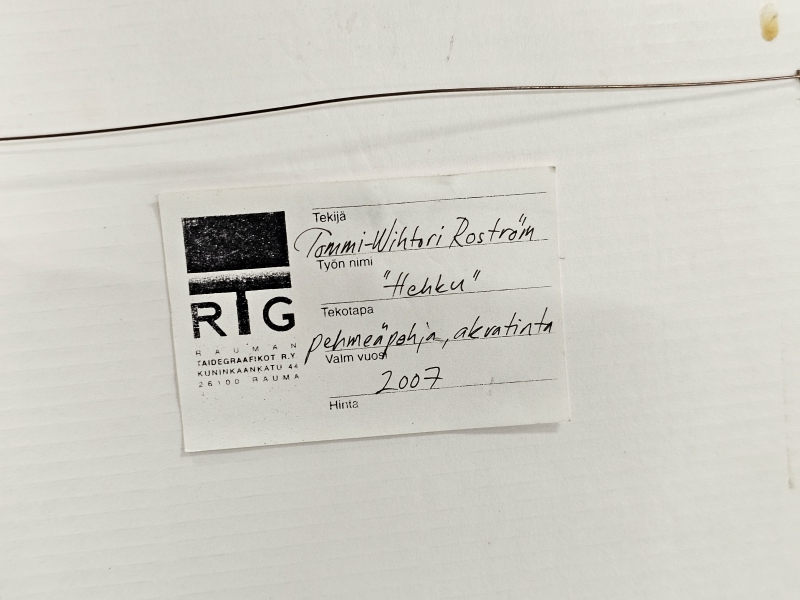 RTG
RAUMAN
TAIDEGRAAFIKOT R.Y.
KUNINKAANKATU 44
26100 RAUMA
Tekijä
Tommi-Wihtori Roström
Työn nimi
"Hehku"
Tekotapa
pehmeäpohja, akvatinta
Valm vuosi
2007
Hinta